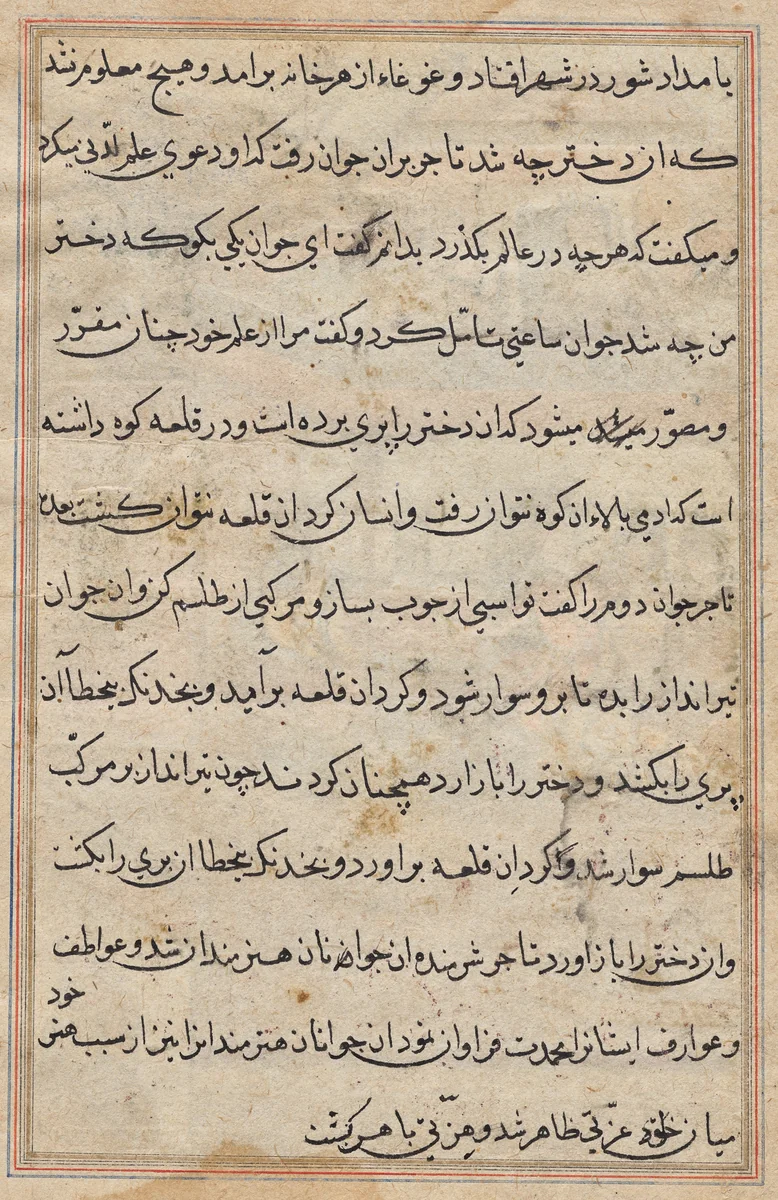 بامداد شور در شهر افتاد و غوغاء از هر خانه برامد و هیچ معلوم نشد
که ان دختر چه شد تاجر بران جوان رفت که او دعوی علم لدّنی میکرد
و میکفت که هر چه در عالم بکذرد بدانم گفت ای جوان یکی بکو که دختر
من چه شد جوان ساعتی تامّل کرد و گفت مرا از علم خود چنان مقرّر
و مصوّر میشود که ان دختر را پری برده است و در قلعه کوه داشته
است که ادمی بالاء ان کوه نتوان رفت و انسان کرد ان قلعه نتوان کشت بعده
تاجر جوان دوم را گفت تو اسپی از جوب بساز و مرکبی از طلسم کن و ان جوان
تیرانداز را بده تا برو سوار شود و کرد ان قلعه برآمید و بخدنک بیخطا آن
پری را بکشد و دختر را باز ارد همچنان کردند چون تیرانداز بر مرکبّ
طلسم سوار شد و کرد ان قلعه براورد و بخدنک بیخطا ان پری را بکشت
وان دختر را باز اورد تاجر شرمنده ان جوانان هنرمندان شد و عواطف
و عوارف ایشانرا محمدت فراوان نمود ان جوانان هنرمندانرا نیز از سبب هنر خود
میان خلق عزّتی ظاهر شد و هزّتی با هر کشت